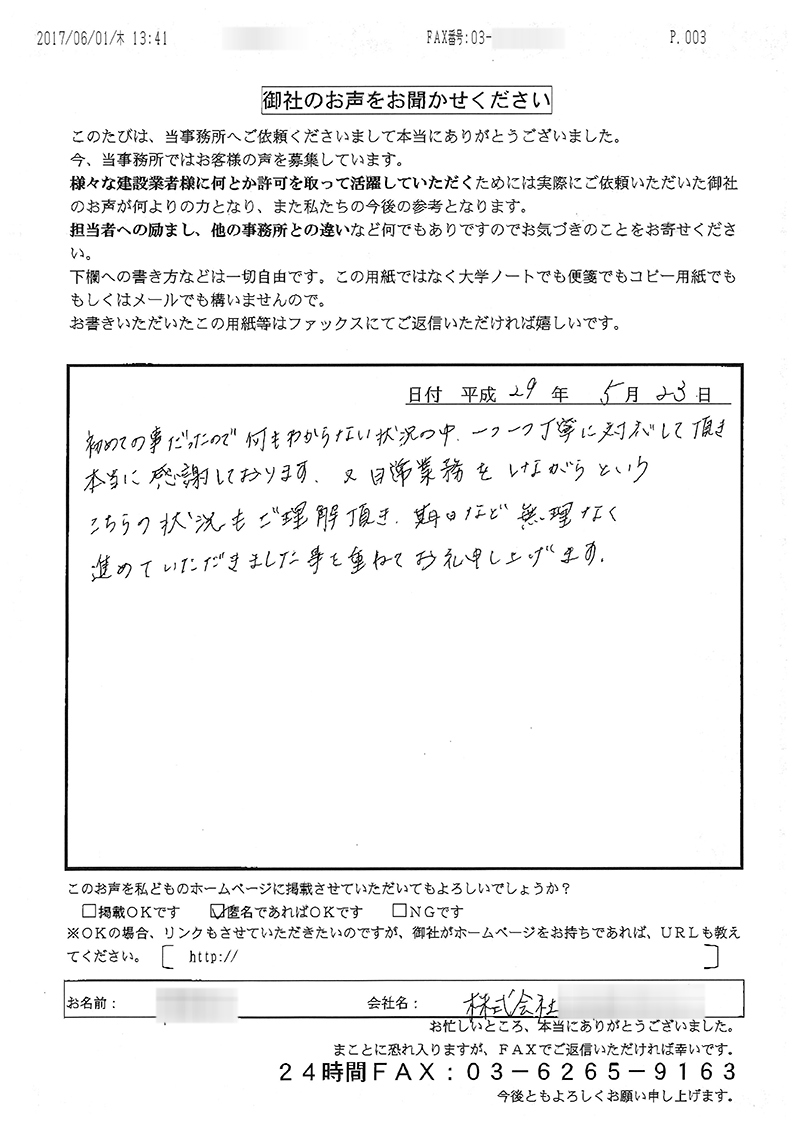 2017/06/01/木 13:41 FAX番号:03- P.003
御社のお声をお聞かせください
このたびは、当事務所へご依頼くださいまして本当にありがとうございました。
今、当事務所ではお客様の声を募集しています。
様々な建設業者様に何とか許可を取って活躍していただくためには実際にご依頼いただいた御社
のお声が何よりの力となり、また私たちの今後の参考となります。
担当者への励まし、他の事務所との違いなど何でもありですのでお気づきのことをお寄せくださ
い。
下欄への書き方などは一切自由です。この用紙ではなく大学ノートでも便箋でもコピー用紙でも
もしくはメールでも構いませんので。
お書きいただいたこの用紙等はファックスにてご返信いただければ嬉しいです。
日付 平成 29 年 5 月 23 日
初めての事だったので何もわからない状況の中、一つ一つ丁寧に対応して頂き
本当に感謝しております。又日常業務をしながらという
こちらの状況もご理解頂き、期日など無理なく
進めていただきました事を重ねてお礼申し上げます。
このお声を私どものホームページに掲載させていただいてもよろしいでしょうか？
□掲載ＯＫです ☑匿名であればＯＫです □ＮＧです
※ＯＫの場合、リンクもさせていただきたいのですが、御社がホームページをお持ちであれば、ＵＲＬも教え
てください。 [ http:// ]
お名前： 会社名： 株式会社
お忙しいところ、本当にありがとうございました。
まことに恐れ入りますが、ＦＡＸでご返信いただければ幸いです。
２４時間ＦＡＸ：０３－６２６５－９１６３
今後ともよろしくお願い申し上げます。